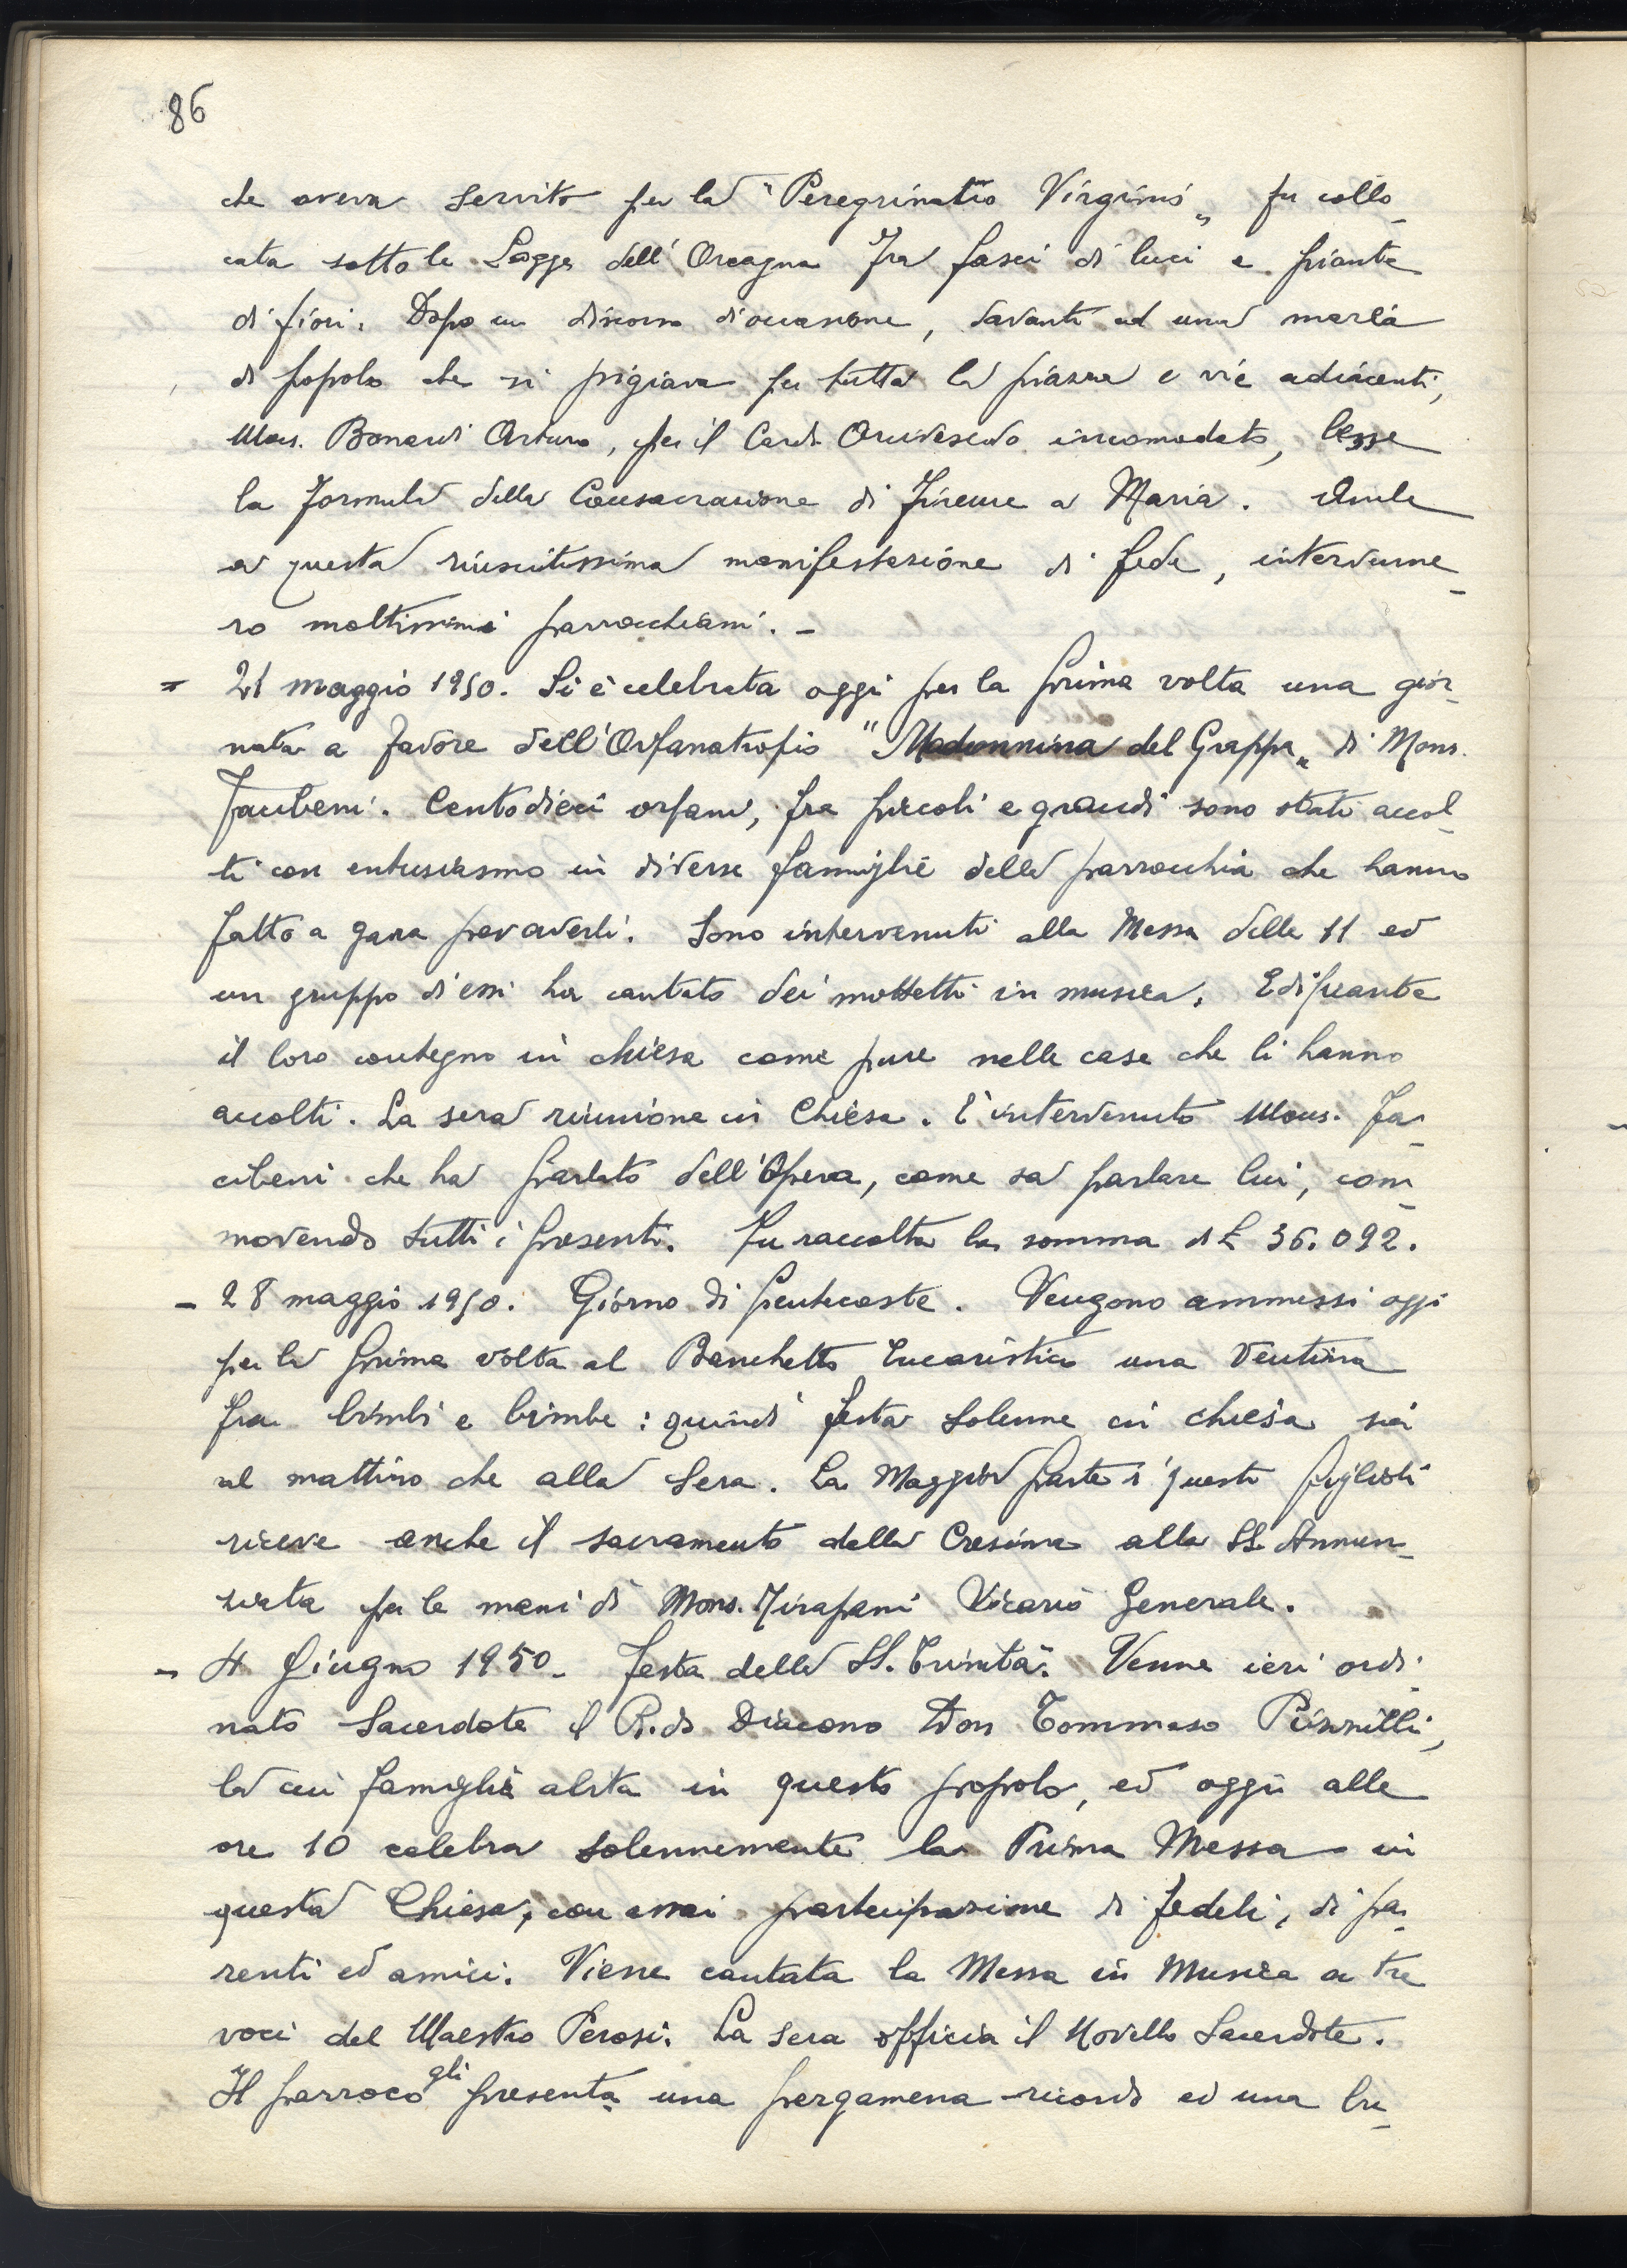 86
che aveva servito per la "Peregrinatio Virginis" fu collo-
cata sotto le Logge dell'Orcagna fra fasci di luci e piante
di fiori. Dopo un discorso d'occasione, davanti ad una marea
di popolo che si pigiava per tutta la piazza e vie adiacenti,
Mons. Bonardi Arturo, per il Card. Arcivescovo incomodato, lesse
la formula della Consacrazione di Firenze a Maria. Anche
a questa riuscitissima manifestazione di fede, intervenne-
ro moltissimi parrocchiani. -
= 21 maggio 1950. Si è celebrata oggi per la prima volta una gior-
nata a favore dell'Orfanatrofio "Madonnina del Grappa" di Mons.
Facibeni. Centodieci orfani, fra piccoli e grandi sono stati accol-
ti con entusiasmo in diverse famiglie della parrocchia che hanno
fatto a gara per averli. Sono intervenuti alla Messa delle 11 ed
un gruppo d'essi ha cantato dei mottetti in musica. Edificante
il loro contegno in chiesa come pure nelle case che li hanno
accolti. La sera riunione in Chiesa. È intervenuto Mons. Fa-
cibeni che ha parlato dell'Opera, come sa parlare lui, com-
movendo tutti i presenti. Fu raccolta la somma di £ 36.092.
- 28 maggio 1950. Giorno di Pentecoste. Vengono ammessi oggi
per la prima volta al Banchetto Eucaristico una ventina
fra bimbi e bimbe: quindi festa solenne in chiesa sia
al mattino che alla sera. La Maggior parte di questi figlioli
riceve anche il sacramento della Cresima alla SS. Annun-
ziata per le mani di Mons. Tirapani Vicario Generale.
- 4 Giugno 1950- Festa della SS. Trinità. Venne ieri ordi-
nato Sacerdote il R.do Diacono Don Tommaso
la cui famiglia abita in questo popolo, ed oggi alle
ore 10 celebra solennemente la Prima Messa in
questa Chiesa, con assai partecipazione di fedeli, di pa-
renti ed amici. Viene cantata la Messa in Musica a tre
voci del Maestro Perosi. La sera officia il Novello Sacerdote.
Il parroco gli presenta una pergamena-ricordo ed una bu-